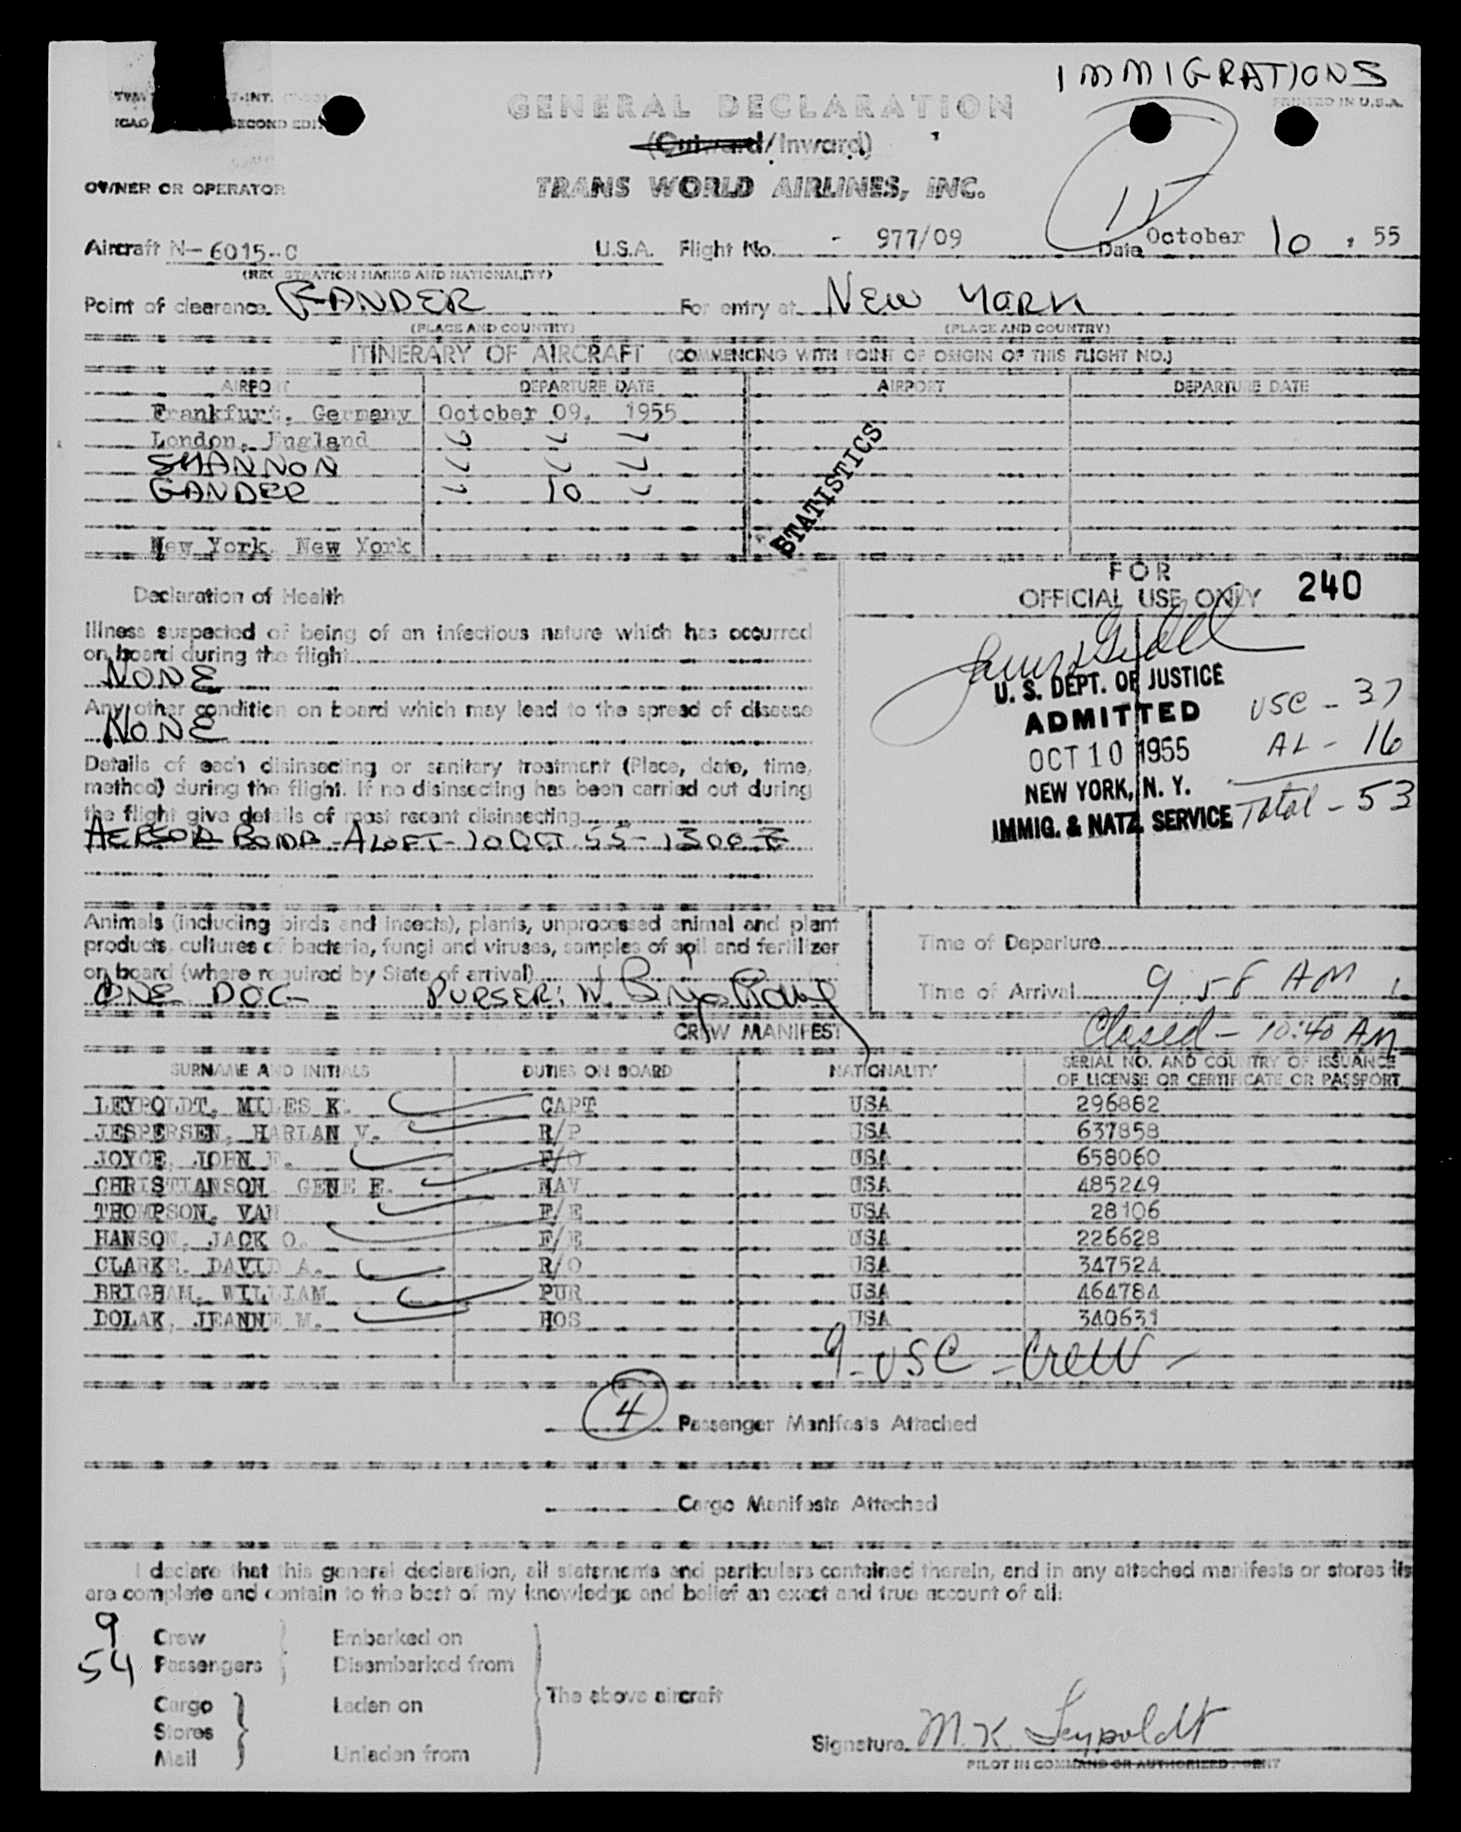 IMMIGRATIONS
SECOND EDI
PRINTED IN U.S.A.
GENERAL DECLARATION
(Outward/Inward)
OWNER OR OPERATOR
TRANS WORLD AIRLINES, INC.
Aircraft N-6015-C U.S.A. Flight No. - 977/09 Date October 10, 55
(REGISTRATION MARKS AND NATIONALITY)
Point of clearance GANDER For entry at NEW YORK
(PLACE AND COUNTRY) (PLACE AND COUNTRY)
ITINERARY OF AIRCRAFT (COMMENCING WITH POINT OF ORIGIN OF THIS FLIGHT NO.)
AIRPORT DEPARTURE DATE AIRPORT DEPARTURE DATE
Frankfurt, Germany October 09, 1955
London, England " " "
SHANNON " " "
GANDER " 10 "
STATISTICS
New York, New York
FOR
OFFICIAL USE ONLY 240
Declaration of Health
Illness suspected of being of an infectious nature which has occurred
on board during the flight
NONE
Any other condition on board which may lead to the spread of disease
NONE
Details of each disinsecting or sanitary treatment (Place, date, time,
method) during the flight. If no disinsecting has been carried out during
the flight give details of most recent disinsecting
AEROSOL BOMB - ALOFT - 10 OCT 55 - 1300 Z
U. S. DEPT. OF JUSTICE
ADMITTED
OCT 10 1955
NEW YORK, N. Y.
IMMIG. & NATZ. SERVICE
USC - 37
AL - 16
Total - 53
Animals (including birds and insects), plants, unprocessed animal and plant
products, cultures of bacteria, fungi and viruses, samples of soil and fertilizer
on board (where required by State of arrival)
ONE DOG PURSER: W.
Time of Departure
Time of Arrival 9:58 AM
Closed - 10:40 AM
CREW MANIFEST
SURNAME AND INITIALS DUTIES ON BOARD NATIONALITY SERIAL NO. AND COUNTRY OF ISSUANCE
OF LICENSE OR CERTIFICATE OR PASSPORT
LEYPOLDT, MILES K. CAPT USA 296882
JESPERSEN, HARLAN V. R/P USA 637858
JOYCE, JOHN F. F/O USA 658060
CHRISTIANSON, GENE E. NAV USA 485249
THOMPSON, VAN F/E USA 28106
HANSON, JACK O. F/E USA 226628
CLARKE, DAVID A. R/O USA 347524
BRIGHAM, WILLIAM PUR USA 464784
DOLAK, JEANNE M. HOS USA 340631
9 - USC - Crew -
4 Passenger Manifests Attached
Cargo Manifests Attached
I declare that this general declaration, all statements and particulars contained therein, and in any attached manifests or stores lis
are complete and contain to the best of my knowledge and belief an exact and true account of all:
9 Crew Embarked on
54 Passengers Disembarked from
Cargo Laden on The above aircraft
Stores
Mail Unladen from
Signature M. K. Leypoldt
PILOT IN COMMAND OR AUTHORIZED AGENT